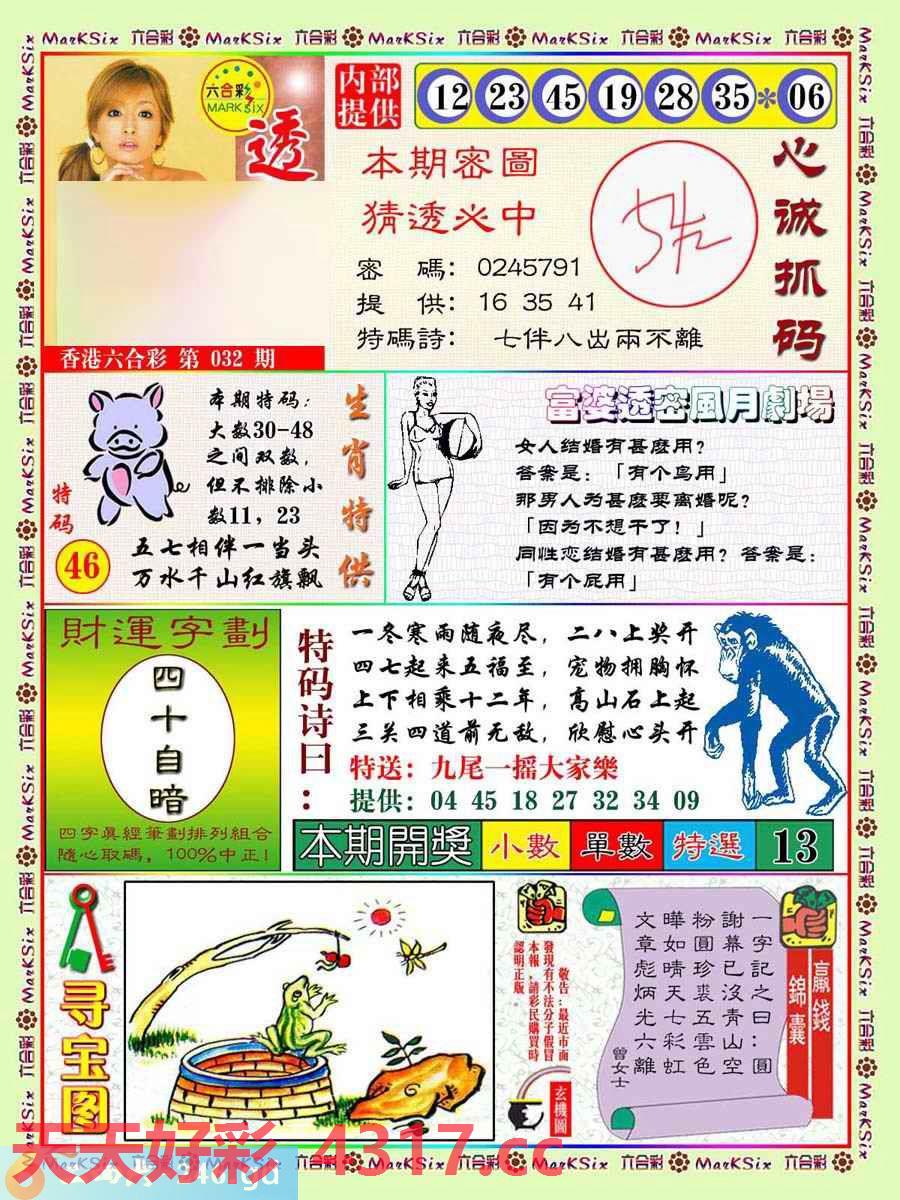 MarKSix 六合彩 MarKSix 六合彩 MarKSix 六合彩 MarKSix 六合彩 MarKSix 六合彩
六合彩
MARK SIX
透
内部提供
12 23 45 19 28 35 * 06
本期密圖
猜透必中
密 碼: 0245791
提 供: 16 35 41
特碼詩: 七伴八出兩不離
心诚抓码
香港六合彩 第 032 期
特码
46
本期特码:
大数30-48
之间双数,
但不排除小
数11, 23
五七相伴一当头
万水千山红旗飘
生肖特供
富婆透密風月劇場
女人结婚有甚麽用?
答案是: 「有个鸟用」
那男人为甚麽要离婚呢?
「因为不想干了! 」
同性恋结婚有甚麽用? 答案是:
「有个屁用」
財運字劃
四十自暗
四字眞經筆劃排列組合
隨心取碼, 100%中正!
特码诗曰:
一冬寒雨随夜尽, 二八上奖开
四七起来五福至, 宠物拥胸怀
上下相乘十二年, 高山石上起
三关四道前无敌, 欣慰心头开
特送: 九尾一摇大家樂
提供: 04 45 18 27 32 34 09
本期開獎 小數 單數 特選 13
寻宝图
敬告:最近市面
發現有不法分子假冒
本報,請彩民購買時
認明正版。
玄機圖
贏錢
錦囊
一字記之曰:圓
謝幕已沒青山空
粉圓珍裘五雲色
曄如晴天七彩虹
文章彪炳光六離
曾女士
天天好彩 4317.cc
MarKSix 六合彩 MarKSix 六合彩